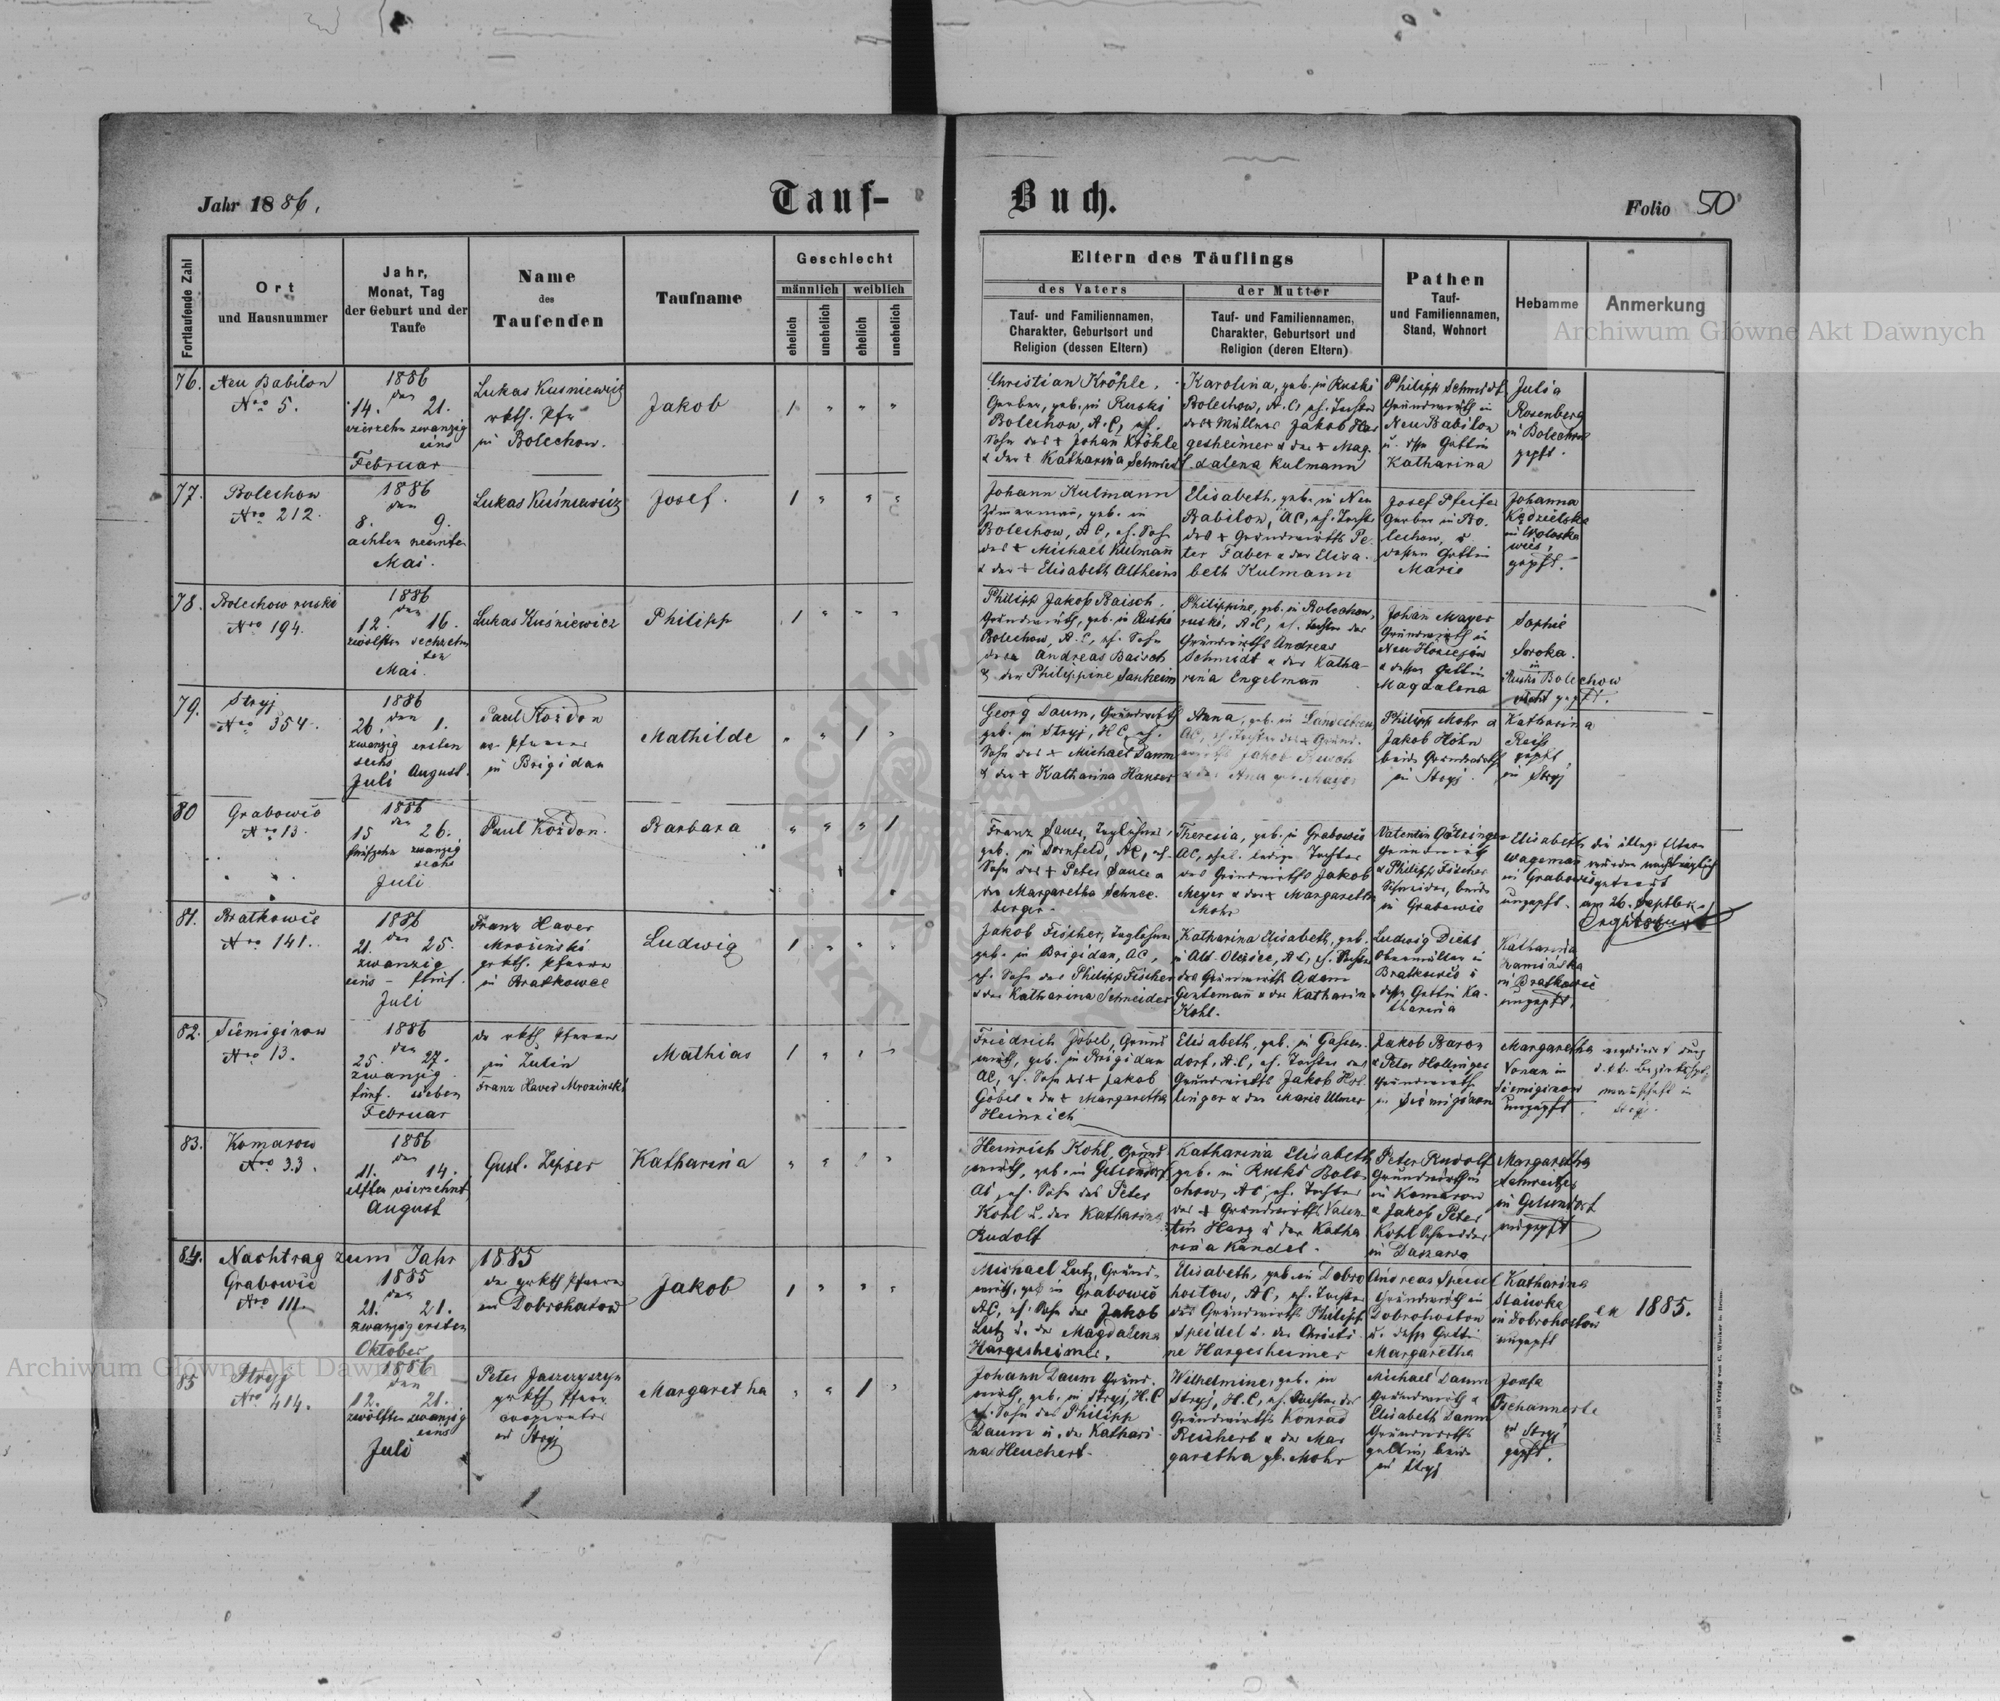 Jahr 1886.
Tauf-
Buch.
Folio 50
Fortlaufende Zahl
Ort
und Hausnummer
Jahr,
Monat, Tag
der Geburt und der
Taufe
Name
des
Taufenden
Taufname
Geschlecht
männlich
weiblich
ehelich
unehelich
ehelich
unehelich
Eltern des Täuflings
des Vaters
der Mutter
Tauf- und Familiennamen,
Charakter, Geburtsort und
Religion (dessen Eltern)
Tauf- und Familiennamen,
Charakter, Geburtsort und
Religion (deren Eltern)
Pathen
Tauf-
und Familiennamen,
Stand, Wohnort
Hebamme
Anmerkung
Archiwum Główne Akt Dawnych
76.
Neu Babilon
Nro 5.
1886
den
14. 21.
vierzehn zwanzig
eins
Februar
Lukas Kuśniewicz
rkth. Pfr
in Bolechow.
Jakob
1
Christian Kröhle,
Gerber, geb. in Ruski
Bolechow, A.C, eh.
Sohn des + Johann Kröhle
& der + Katharina Schmidt
Karolina, geb. in Ruski
Bolechow, A.C, eh. Tochter
des + Müllner Jakob Har
gesheimer & der + Mag.
dalena Kulmann
Philipp Schmidt
Grundwirth in
Neu Babilon
u. dssn Gattin
Katharina
Julia
Rosenberg
in Bolechow
gepft.
77.
Bolechow
Nro 212.
1886
den
8. 9.
achten neunten
Mai.
Lukas Kuśniewicz
Josef.
1
Johann Kulmann
Zimmermann, geb. in
Bolechow, AC, eh. Sohn
des + Michael Kulmann
& der + Elisabeth Altheim
Elisabeth, geb. in Neu
Babilon, AC, eh. Tocht
des + Grundwirths Pe-
ter Faber & der Elisa.
beth Kulmann
Josef Pfeifer
Gerber in Bo.
lechow, &
dessen Gattin
Marie
Johanna
Kędzielska
in Woloska
wies,
gepft.
78.
Bolechow ruski
Nro 194.
1886
den
12. 16.
zwölften sechzehn
ten
Mai.
Lukas Kuśniewicz
Philipp
1
Philipp Jakob Baisch.
Grundwirth, geb. in Ruski
Bolechow, A.C, eh. Sohn
Andreas Baisch
& der Philippine Sanheim
Philippine, geb. in Bolechow,
ruski, A.C, eh. Tochter des
Grundwirths Andreas
Schmidt & der Katha-
rina Engelmann
Johann Mayer
Grundwirth in
& dessen Gattin
Magdalena
Sophie
Soroka.
in
Ruski Bolechow
nicht gepft.
79.
Stryj
Nro 354.
1886
den
26. 1.
zwanzig ersten
sechs
Juli August.
Paul Kozdon
ev. Pfarrer
in Brigidau
Mathilde
1
Georg Daum, Grundwirth
geb. in Stryj, HC, eh.
Sohn des + Michael Daum
& der + Katharina Hanser
Anna, geb. in Landestreu,
AC, eh. Tochter des + Grund.
wirths Jakob Rusch
& der Ana geb. Mayer
Philipp Mohr &
Jakob Höhn
beide Grundwirth
in Stryj.
Katharina
Reiss
gepft,
in Stryj
80
Grabowic
Nro 13.
1886
den
15 26.
fünfzehn zwanzig
sechs
Juli
Paul Kozdon.
Barbara
1
Franz Sauer, Taglöhner,
geb. in Dornfeld, AC, eh.
Sohn des + Peter Sauer &
der Margaretha Schnee.
berger.
Theresia, geb. in Grabowic
AC, ehel. ledige Tochter
des Grundwirths Jakob
Meyer & der + Margaretha
Mohr
Valentin Oetzinger
Grundwirth
& Philipp Fischer
Schneider, beide
in Grabowic
Elisabeth
Wageman
in Grabowic
ungepft.
die illeg. Eltern
wurden nachträglich
getraut
am 26. Septber
81.
Bratkowic
Nro 141.
1886
den
21. 25.
zwanzig
eins – fünf.
Juli
Franz Xaver
Mroziński
grkth. Pfarrer
in Bratkowce
Ludwig
1
Jakob Fischer, Taglöhner
geb. in Brigidau, AC,
eh. Sohn des Philipp Fischer
& der Katharina Schneider
Katharina Elisabeth, geb.
in Alt Oleśice, AC, eh. Tochter
des Grundwirth Adam
Gentemann & der Katharina
Kohl.
Ludwig Diehl
Obermüller in
Bratkowic &
dssn Gattin Ka.
tharina
Katharina
in Bratkowic
ungepft,
82.
Siemiginow
Nro 13.
1886
den
25. 27.
zwanzig
fünf. sieben
Februar
der rkth Pfarrer
in Zulin
Franz Xaver Mrozinski
Mathias
1
Friedrich Göbel, Grund
wirth, geb. in Brigidau
AC, eh. Sohn des + Jakob
Göbel & der + Margaretha
Heinrich
Elisabeth, geb. in Gassen.
dorf, A.C, eh. Tochter des
Grundwirths Jakob Hol.
linger & der Marie Ulmer
Jakob Baron
& Peter Hollinger
Grundwirth
in Siemiginow
Margaretha
Vonau in
Siemiginow
ungepft.
durch
d. k. k. Bezirkshpt.
mannschaft in
Stryj.
83.
Komarow
Nro 33.
1886
den
11. 14.
elften vierzehnt
August
Gust. Zipser
Katharina
1
Heinrich Kohl, Grund
wirth, geb. in Gelsendorf
AC, eh. Sohn des Peter
Kohl & der Katharina
Rudolf
Katharina Elisabeth
geb. in Ruski Bole-
chow, AC, eh. Tochter
des + Grundwirth Valen-
tin Harz & der Katha
rina Kandel.
Peter Rudolf
Grundwirth
in Komarow
& Jakob Peter
Kohl Schneider
in Daszawa
Margaretha
Schweitzer
in Gelsendorf
ungepft
84.
Nachtrag zum Jahr 1885
Grabowic
Nro 111.
1885
den
21. 21.
zwanzig ersten
Oktober
der grkth Pfarrer
in Dobrohostow
Jakob
1
Michael Lutz, Grund-
wirth, geb in Grabowic
AC, eh. Sohn des Jakob
Lutz & der Magdalena
Hargesheimer.
Elisabeth, geb. in Dobro
hostow, AC, eh. Tochter
des Grundwirths Philipp
Speidel & der Christi
ne Hargesheimer
Andreas Speidel
Grundwirth in
Dobrohostow
u. dessn Gattin
Margaretha
Katharina
in Dobrohostow
ungepft
1885.
85
Stryj
Nro 414.
1886
den
12. 21.
zwölften zwanzig
eins
Juli
Peter Jaszczyszyn
grkth Pfarr
cooperator
in Stryj
Margaretha
1
Johann Daum Grund.
wirth, geb. in Stryj, H.C
eh. Sohn des Philipp
Daum u. der Kathari-
na Heuchert.
Wilhelmine, geb. in
Stryj, H.C, eh. Tochter des
Grundwirths Konrad
Reichert & der Mar
garetha gb. Mohr
Michael Daum
Grundwirth &
Elisabeth Daum
Grundwirths
gattin, beide
in Stryj
Josefa
Tschannerle
in Stryj
gepft.
Archiwum Główne Akt Dawnych